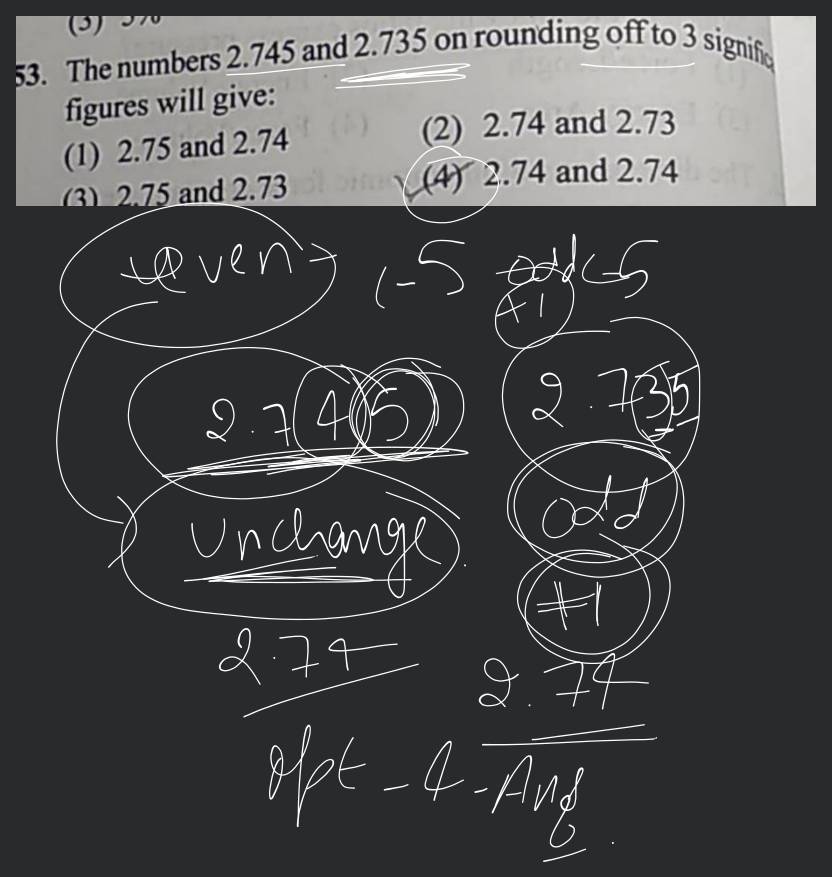 (3) 5%
53. The numbers 2.745 and 2.735 on rounding off to 3 signific
figures will give:
(1) 2.75 and 2.74 (2) 2.74 and 2.73
(3) 2.75 and 2.73 (4) 2.74 and 2.74
even - 5 odd - 5
+1
2.745 2.735
Unchange odd
+1
2.74 2.74
opt - 4 - Ans